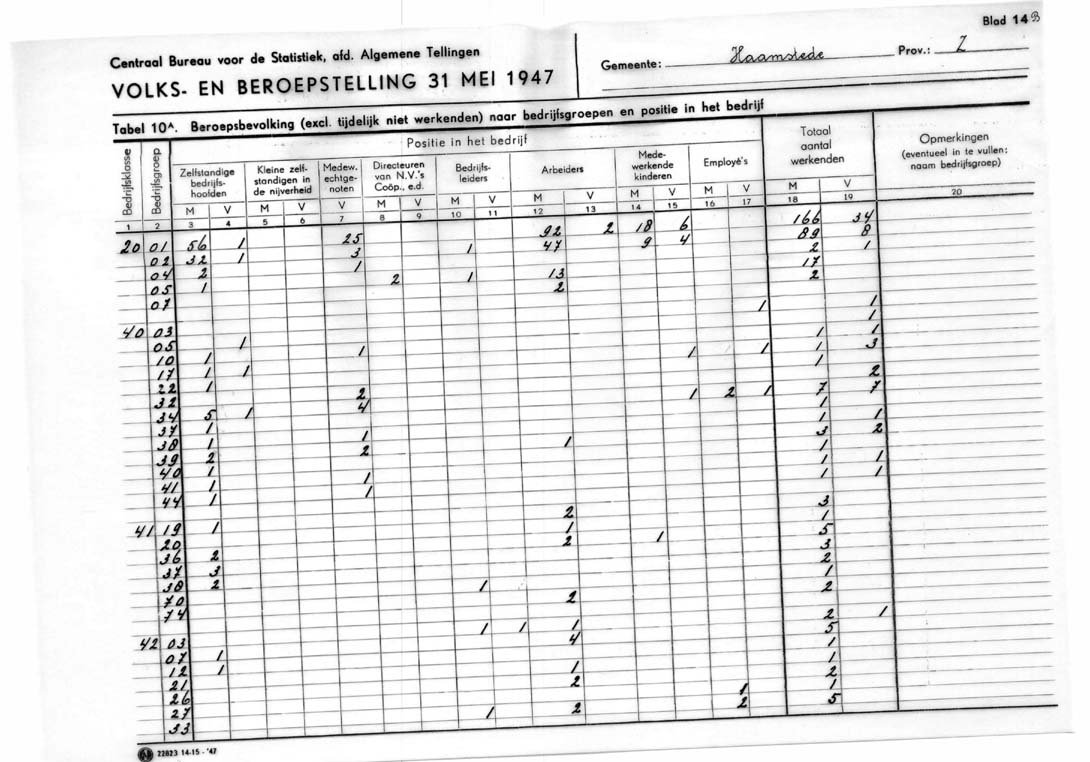 Blad 14 B
Centraal Bureau voor de Statistiek, afd. Algemene Tellingen
VOLKS- EN BEROEPSTELLING 31 MEI 1947
Gemeente: Haamstede Prov.: Z
Tabel 10A. Beroepsbevolking (excl. tijdelijk niet werkenden) naar bedrijfsgroepen en positie in het bedrijf
Bedrijfsklasse
Bedrijfsgroep
Positie in het bedrijf
Zelfstandige bedrijfs-hoofden
Kleine zelf-standigen in de nijverheid
Medew. echtge-noten
Directeuren van N.V.'s Coöp., e.d.
Bedrijfs-leiders
Arbeiders
Mede-werkende kinderen
Employé's
Totaal aantal werkenden
Opmerkingen (eventueel in te vullen: naam bedrijfsgroep)
M V M V V M V M V M V M V M V M V
1 2 3 4 5 6 7 8 9 10 11 12 13 14 15 16 17 18 19 20
20 01 56 1 25 92 2 18 6 166 34
02 32 1 3 1 47 9 4 89 8
04 2 1 2 1
05 1 2 1 13 17
07 2 2
40 03 1 1
05 1 1
10 1 1 1 1
17 1 1 1 1 1 3
22 1 1
32 2 2
34 5 1 4 1 2 1 7 7
37 1 1
38 1 1 1 1
39 2 2 1 3 2
40 1 1 1 1
41 1 1 1 1
44 1
41 19 1 2 3
20 1 1
36 2 2 1 5
37 3 3
38 2 2
70 1 1
74 2 2
42 03 1 1 1 2 1
07 1 4 5
12 1 1
21 1 1
26 2 2
27 1 1
33 1 2 2 5
22823 14-15 - '47